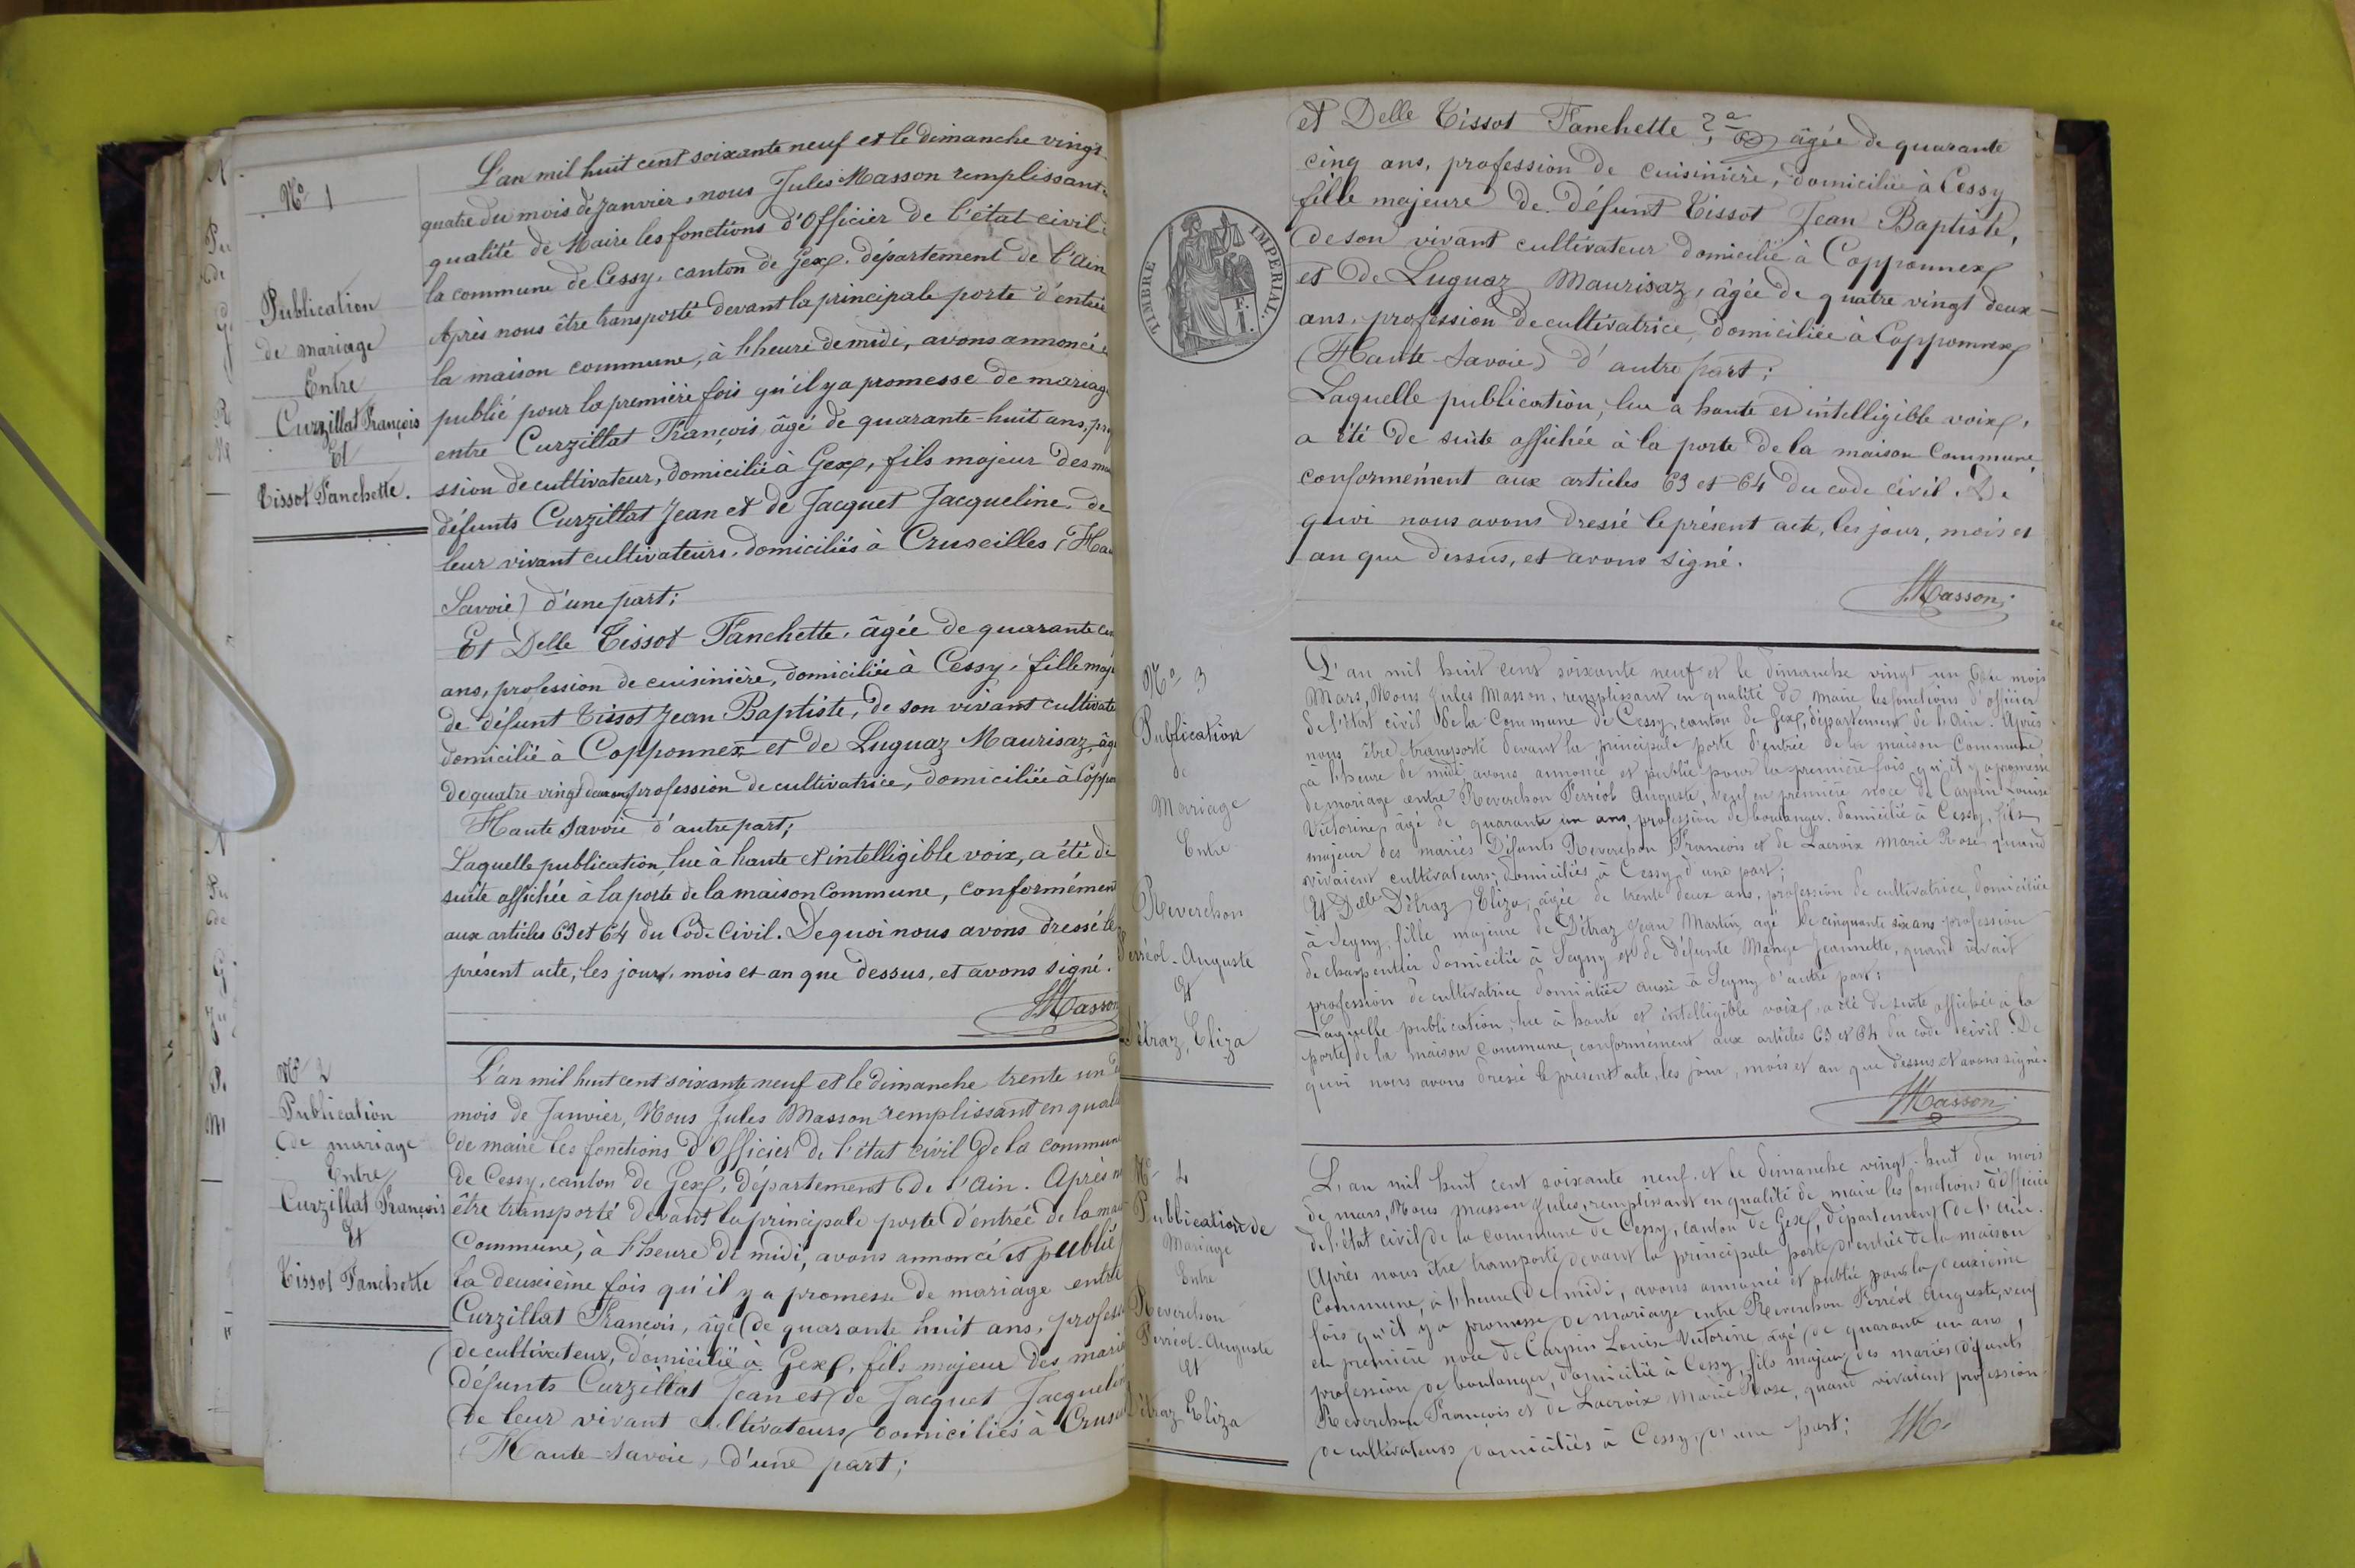 Nº 1
Publication
de mariage
Entre
Curzillat François
Et
Tissot Fanchette.
L'an mil huit cent soixante neuf et le dimanche vingt
quatre du mois de Janvier, nous Jules Masson remplissant
qualité de Maire les fonctions d'Officier de l'état civil
la commune de Cessy, canton de Gex, département de l'Ain
Après nous être transporté devant la principale porte d'entrée
la maison commune, à l'heure de midi, avons annoncé
publié pour la première fois qu'il y a promesse de mariage
entre Curzillat François, âgé de quarante-huit ans, prof
ssion de cultivateur, domicilié à Gex, fils majeur des
défunts Curzillat Jean et de Jacquet Jacqueline, de
leur vivant cultivateurs, domiciliés à Cruseilles (Hau
Savoie) d'une part;
Et Delle Tissot Fanchette, âgée de quarante
ans, profession de cuisinière, domiciliée à Cessy, fille maj
de défunt Tissot Jean Baptiste, de son vivant cultivate
domicilié à Copponnex et de Luguaz Maurisaz, âg
de quatre-vingt deux ans profession de cultivatrice, domiciliée à Coppo
Haute Savoie d'autre part;
Laquelle publication, lue à haute et intelligible voix, a été de
suite affichée à la porte de la maison Commune, conformément
aux articles 63 et 64 du Code Civil. De quoi nous avons dressé le
présent acte, les jours, mois et an que dessus, et avons signé.
JMasson
Nº 2
Publication
de mariage
Entre
Curzillat François
Et
Tissot Fanchette
L'an mil huit cent soixante neuf et le dimanche trente un
mois de Janvier, Nous Jules Masson remplissant en quali
de maire les fonctions d'Officier de l'état civil de la commune
de Cessy, canton de Gex, département de l'Ain. Après n
être transporté devant la principale porte d'entrée de la mai
Commune, à l'heure de midi, avons annoncé et publié
la deuxième fois qu'il y a promesse de mariage entre
Curzillat François, âgé de quarante huit ans, profess
de cultivateur, domicilié à Gex, fils majeur des marié
défunts Curzillat Jean et de Jacquet Jacqueli
de leur vivant cultivateurs domiciliés à Cruse
(Haute-Savoie, d'une part;
TIMBRE IMPERIAL.
et Delle Tissot Fanchette, âgée de quarante
cinq ans, profession de cuisinière, domiciliée à Cessy
fille majeure de défunt Tissot Jean Baptiste,
de son vivant cultivateur domicilié à Copponnex
et de Luguaz Maurisaz, âgée de quatre vingt deux
ans, profession de cultivatrice, domiciliée à Copponnex
(Haute-Savoie) d'autre part;
Laquelle publication, lue a haute et intelligible voix,
a été de suite affichée à la porte de la maison Commune,
conformément aux articles 63 et 64 du code civil. De
quoi nous avons dressé le présent acte, les jour, mois et
an que dessus, et avons signé.
JMasson
Nº 3
Publication
de
Mariage
Entre
Reverchon
Ferréol-Auguste
Et
Détraz, Eliza
L'an mil huit cent soixante neuf et le dimanche vingt un du mois
Mars, Nous Jules Masson, remplissant en qualité de maire les fonctions d'officier
de l'état civil de la Commune de Cessy, canton de Gex, département de l'Ain. Après
nous être transporté devant la principale porte d'entrée de la maison Commune,
à l'heure de midi avons annoncé et publié pour la première fois qu'il y a promesse
de mariage entre Reverchon Ferréol Auguste, veuf en première noce de Carpin Louise
Victorine, âgé de quarante un ans, profession de boulanger, domicilié à Cessy, fils
majeur des mariés Défunts Reverchon François et de Lacroix Marie Rose, quand
vivaient cultivateurs, domiciliés à Cessy, d'une part;
Et Delle Détraz, Eliza, âgée de trente deux ans, profession de cultivatrice, domiciliée
à Segny, fille majeure de Détraz Jean Martin, agé de cinquante six ans profession
de charpentier domicilié à Segny et de défunte Mange Jeannette, quand vivait
profession de cultivatrice domiciliée aussi à Segny d'autre part;
Laquelle publication, lue à haute et intelligible voix, a été de suite affichée à la
porte de la maison Commune, conformément aux articles 63 et 64 du code civil. De
quoi nous avons dressé le présent acte, les jour, mois et an que dessus et avons signé.
JMasson
Nº 4
Publication de
Mariage
Entre
Reverchon
Ferréol-Auguste
Et
Détraz Eliza
L'an mil huit cent soixante neuf et le dimanche vingt-huit du mois
de mars, Nous Masson Jules, remplissant en qualité de maire les fonctions d'officier
de l'état civil de la commune de Cessy, canton de Gex, département de l'Ain.
Après nous être transporté devant la principale porte d'entrée de la maison
Commune, à l'heure de midi, avons annoncé et publié pour la deuxième
fois qu'il y a promesse de mariage entre Reverchon Ferréol Auguste, veuf
en première noce de Carpin Louise Victorine âgé de quarante un ans,
profession de boulanger, domicilié à Cessy, fils majeur des mariés défunts
Reverchon François et de Lacroix Marie Rose, quand vivaient profession
de cultivateurs domiciliés à Cessy, d'une part; JM.